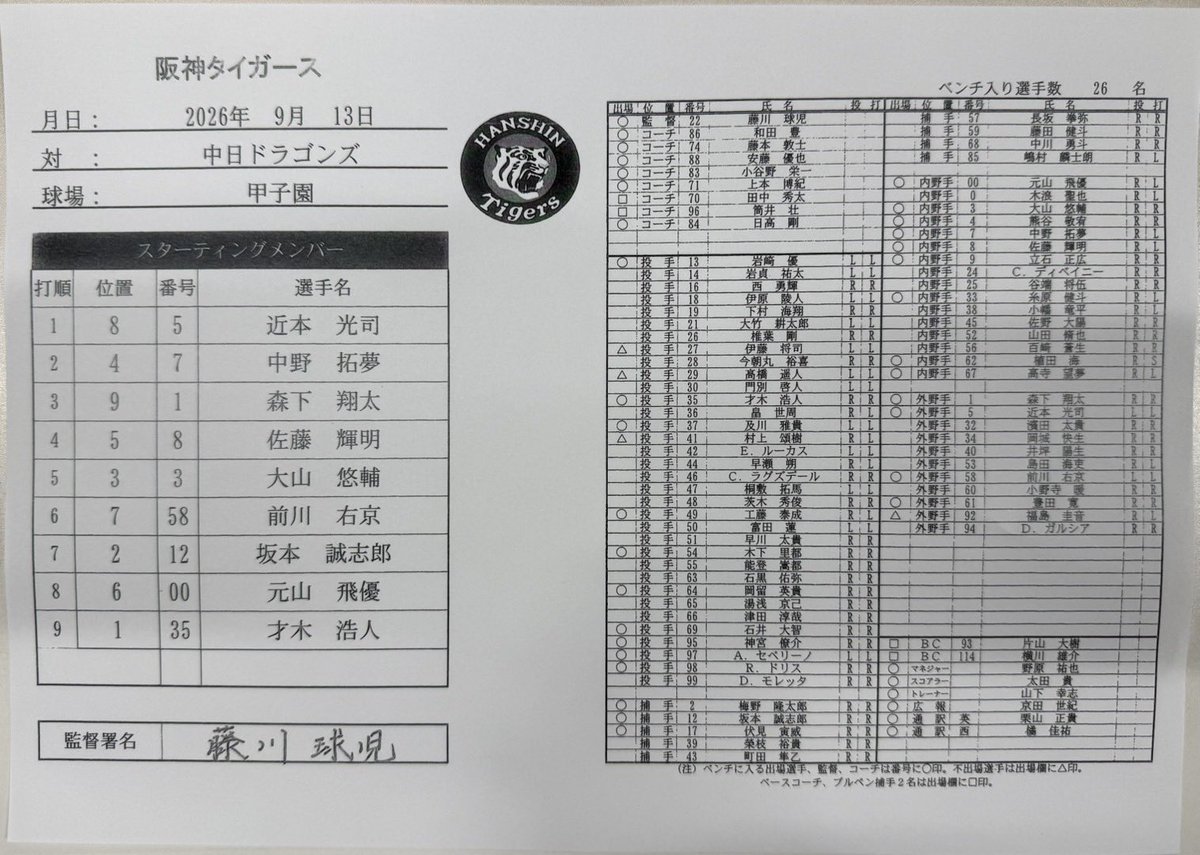 阪神タイガース
月日： 2026年 9月 13日
対 ： 中日ドラゴンズ
球場： 甲子園
HANSHIN
Tigers
スターティングメンバー
打順 位置 番号 選手名
1 8 5 近本 光司
2 4 7 中野 拓夢
3 9 1 森下 翔太
4 5 8 佐藤 輝明
5 3 3 大山 悠輔
6 7 58 前川 右京
7 2 12 坂本 誠志郎
8 6 00 元山 飛優
9 1 35 才木 浩人
監督署名 藤川 球児
ベンチ入り選手数 26 名
出場 位置 番号 氏名 投 打
○ 監督 22 藤川 球児
○ コーチ 86 和田 豊
○ コーチ 74 藤本 敦士
○ コーチ 88 安藤 優也
○ コーチ 83 小谷野 栄一
○ コーチ 71 上本 博紀
□ コーチ 70 田中 秀太
□ コーチ 96 筒井 壮
○ コーチ 84 日高 剛
○ 投手 13 岩崎 優 L L
投手 14 岩貞 祐太 L L
投手 16 西 勇輝 R R
投手 18 伊原 陵人 L L
投手 19 下村 海翔 R R
投手 21 大竹 耕太郎 L L
投手 26 椎葉 剛 R R
△ 投手 27 伊藤 将司 L L
投手 28 今朝丸 裕喜 R R
△ 投手 29 高橋 遥人 L L
投手 30 門別 啓人 L L
○ 投手 35 才木 浩人 R R
投手 36 畠 世周 R L
○ 投手 37 及川 雅貴 L L
△ 投手 41 村上 頌樹 R L
投手 42 E．ルーカス L L
投手 44 早瀬 朔 L L
投手 46 C．ラグズデール R R
投手 47 桐敷 拓馬 L L
投手 48 茨木 秀俊 R R
○ 投手 49 工藤 泰成 R R
投手 50 富田 蓮 L L
投手 51 早川 太貴 R R
○ 投手 54 木下 里都 R R
投手 55 能登 嵩都 R R
投手 63 石黒 佑弥 R R
○ 投手 64 岡留 英貴 R R
投手 65 湯浅 京己 R R
投手 66 津田 淳哉 R R
○ 投手 69 石井 大智 R R
○ 投手 95 神宮 僚介 R R
○ 投手 97 A．セベリーノ L L
○ 投手 98 R．ドリス R R
投手 99 D．モレッタ R R
○ 捕手 2 梅野 隆太郎 R R
○ 捕手 12 坂本 誠志郎 R R
○ 捕手 17 伏見 寅威 R R
捕手 39 榮枝 裕貴 R R
捕手 43 町田 隼乙 R R
出場 位置 番号 氏名 投 打
捕手 57 長坂 拳弥 R R
捕手 59 藤田 健斗 R R
捕手 68 中川 勇斗 R R
捕手 85 嶋村 麟士朗 R L
○ 内野手 00 元山 飛優 R L
内野手 0 木浪 聖也 R L
○ 内野手 3 大山 悠輔 R R
○ 内野手 4 熊谷 敬宥 R R
○ 内野手 7 中野 拓夢 R L
○ 内野手 8 佐藤 輝明 R L
○ 内野手 9 立石 正広 R R
内野手 24 C．ディベイニー R R
内野手 25 谷端 将伍 R R
○ 内野手 33 糸原 健斗 R L
内野手 38 小幡 竜平 R L
内野手 45 佐野 大陽 R R
内野手 52 山田 脩也 R R
内野手 56 百崎 蒼生 R R
○ 内野手 62 植田 海 R S
○ 内野手 67 高寺 望夢 R L
○ 外野手 1 森下 翔太 R R
○ 外野手 5 近本 光司 L L
外野手 32 濱田 太貴 R R
外野手 34 岡城 快生 R R
外野手 40 井坪 陽生 R R
外野手 53 島田 海吏 R L
○ 外野手 58 前川 右京 L L
外野手 60 小野寺 暖 R R
○ 外野手 61 豊田 寛 R R
△ 外野手 92 福島 圭音 R L
外野手 94 D．ガルシア R R
□ BC 93 片山 大樹
□ BC 114 横川 雄介
○ マネジャー 野原 祐也
○ スコアラー 太田 貴
○ トレーナー 山下 幸志
○ 広報 京田 世紀
○ 通訳 英 栗山 正貴
○ 通訳 西 橘 佳祐
（注） ベンチに入る出場選手、監督、コーチは番号に○印。不出場選手は出場欄に△印。
ベースコーチ、ブルペン捕手２名は出場欄に□印。